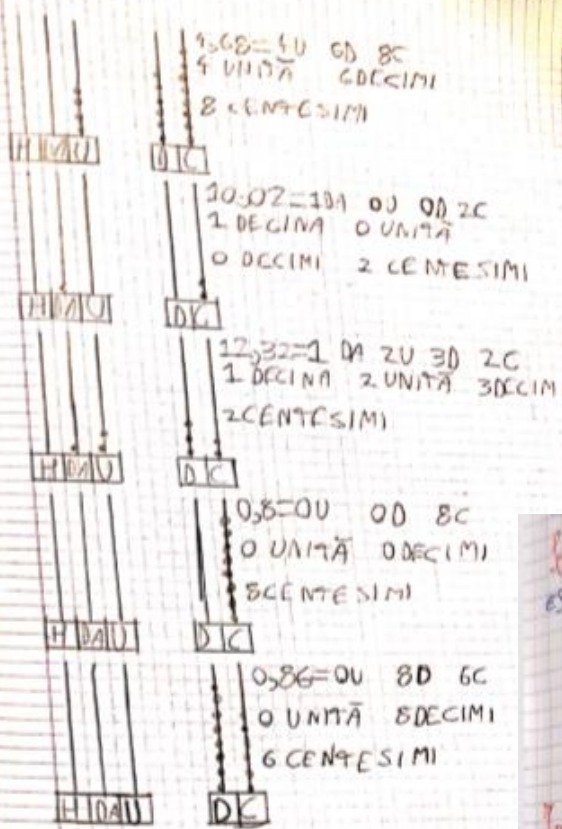 4,68=4U 6D 8C
4 UNITÀ 6DECIMI
8 CENTESIMI
H DA U D C
10,02=1DA 0U 0D 2C
1 DECINA 0 UNITÀ
0 DECIMI 2 CENTESIMI
H DA U D C
12,32=1 DA 2U 3D 2C
1 DECINA 2 UNITÀ 3DECIM
2CENTESIMI
H DA U D C
0,8=0U 0D 8C
0 UNITÀ 0DECIMI
8CENTESIMI
H DA U D C
0,86=0U 8D 6C
0 UNITÀ 8DECIMI
6 CENTESIMI
H DA U D C